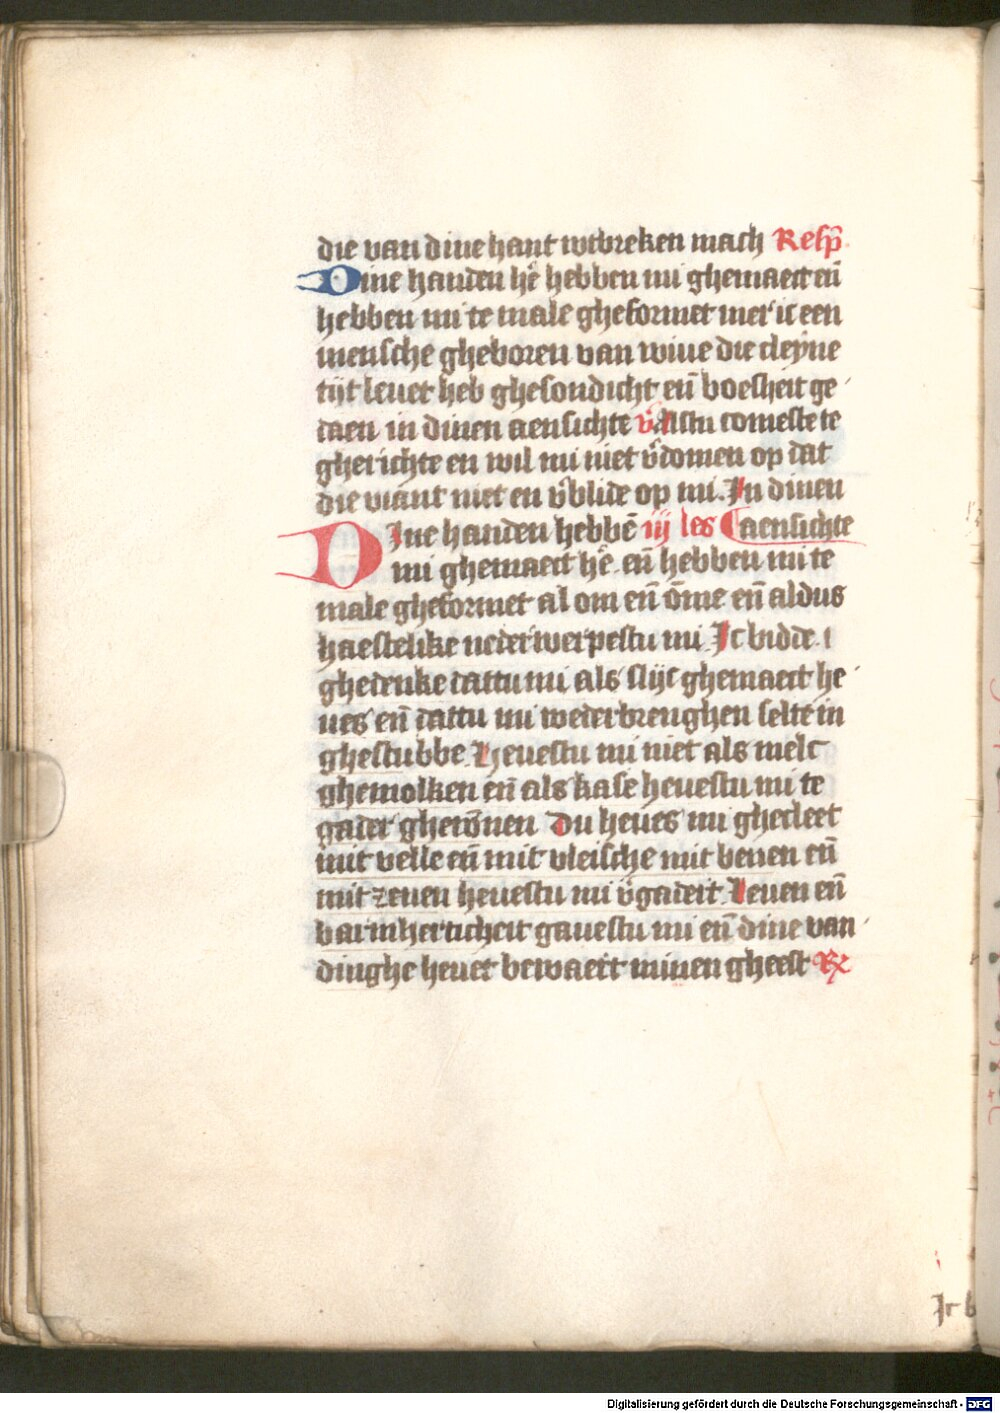 die van dine hant wtbreken mach Resp̄
Dine handen he᷑ hebben mi ghemaect en̄
hebben mi te male gheformet mer ic een
mensche gheboren van wiue die cleyne
tijt leuet heb ghesondicht en̄ boesheit ge
daen in dinen aensichte v᷑ Alstu comeste te
gherichte en wil mi niet v᷑domen op dat
die viant niet en v᷑blide op mi. In dinen
Dine handen hebbē iij les aensichte
mi ghemaect he᷑ en̄ hebben mi te
male gheformet al om en̄ ōme en̄ aldus
haestelike neder werpestu mi Ic bidde .i
ghedenke dattu mi als slijc ghemaect he
ues en̄ dattu mi weder brenghen selte in
ghestubbe Heuestu mi niet als melc
ghemolken en̄ als kase heuestu mi te
gader gherōnen Du heues mi ghecleet
mit velle en̄ mit vleische mit benen en̄
mit zenen heuestu mi v᷑gadert Leuen en̄
barmherticheit gauestu mi en̄ dine van
dinghe heuet bewaert minen gheest ℞
Ic b
Digitalisierung gefördert durch die Deutsche Forschungsgemeinschaft - DFG